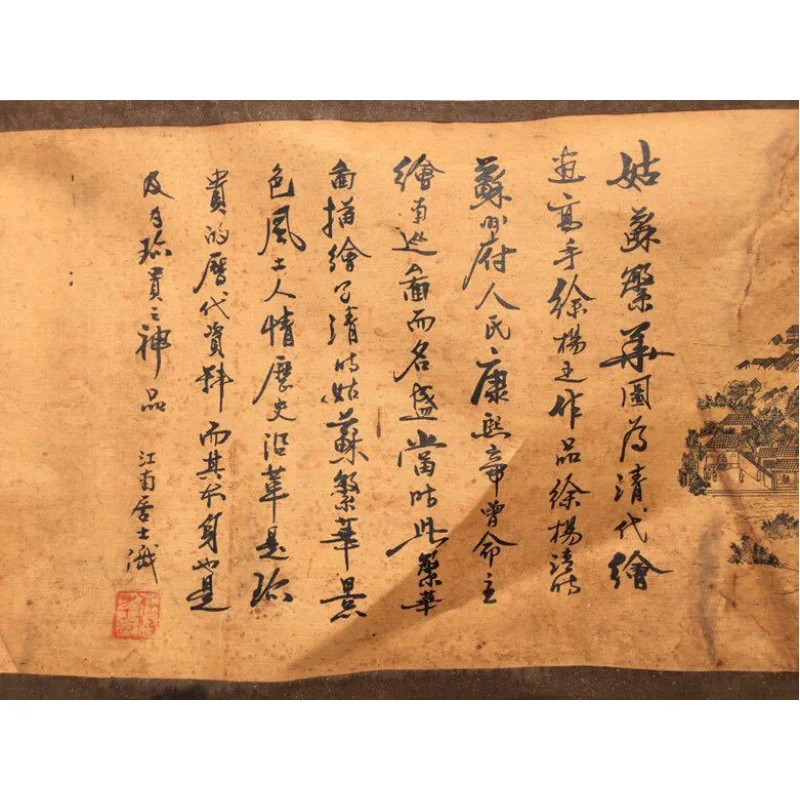 姑蘇繁華圖為清代繪
画高手徐楊之作品徐楊清時
蘇州府人民康熙帝曾命主
繪南巡圖而名盛當時此繁華
圖描繪了清時姑蘇繁華景
色風土人情歷史沿革是珎
貴的曆代資料而其本身也是
及為珎貴之神品
江南居士